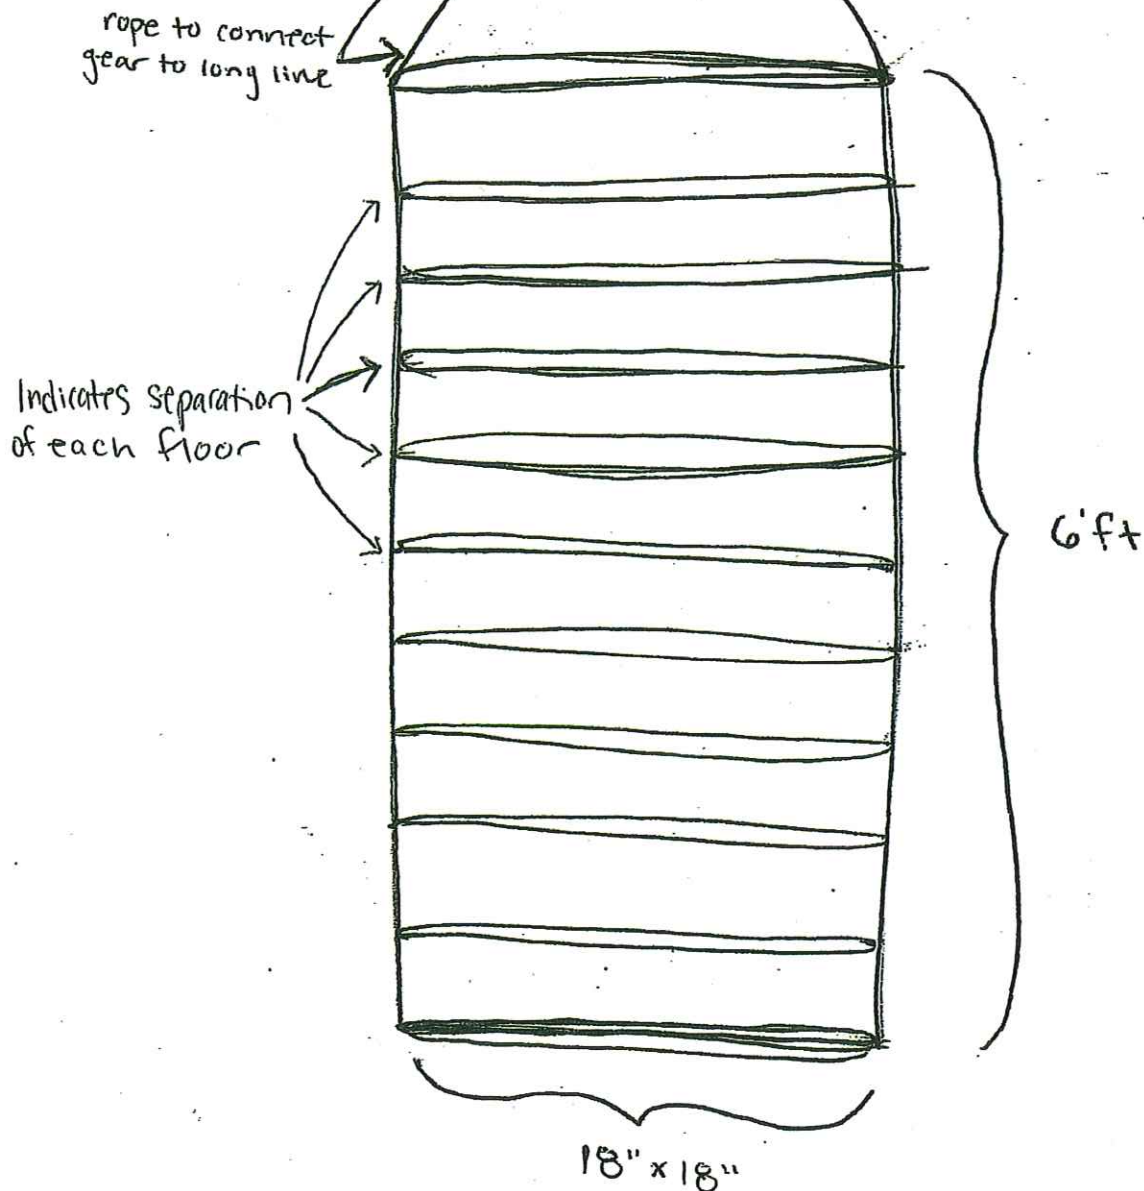 rope to connect
gear to long line
Indicates separation
of each floor
6'ft
18" x 18"